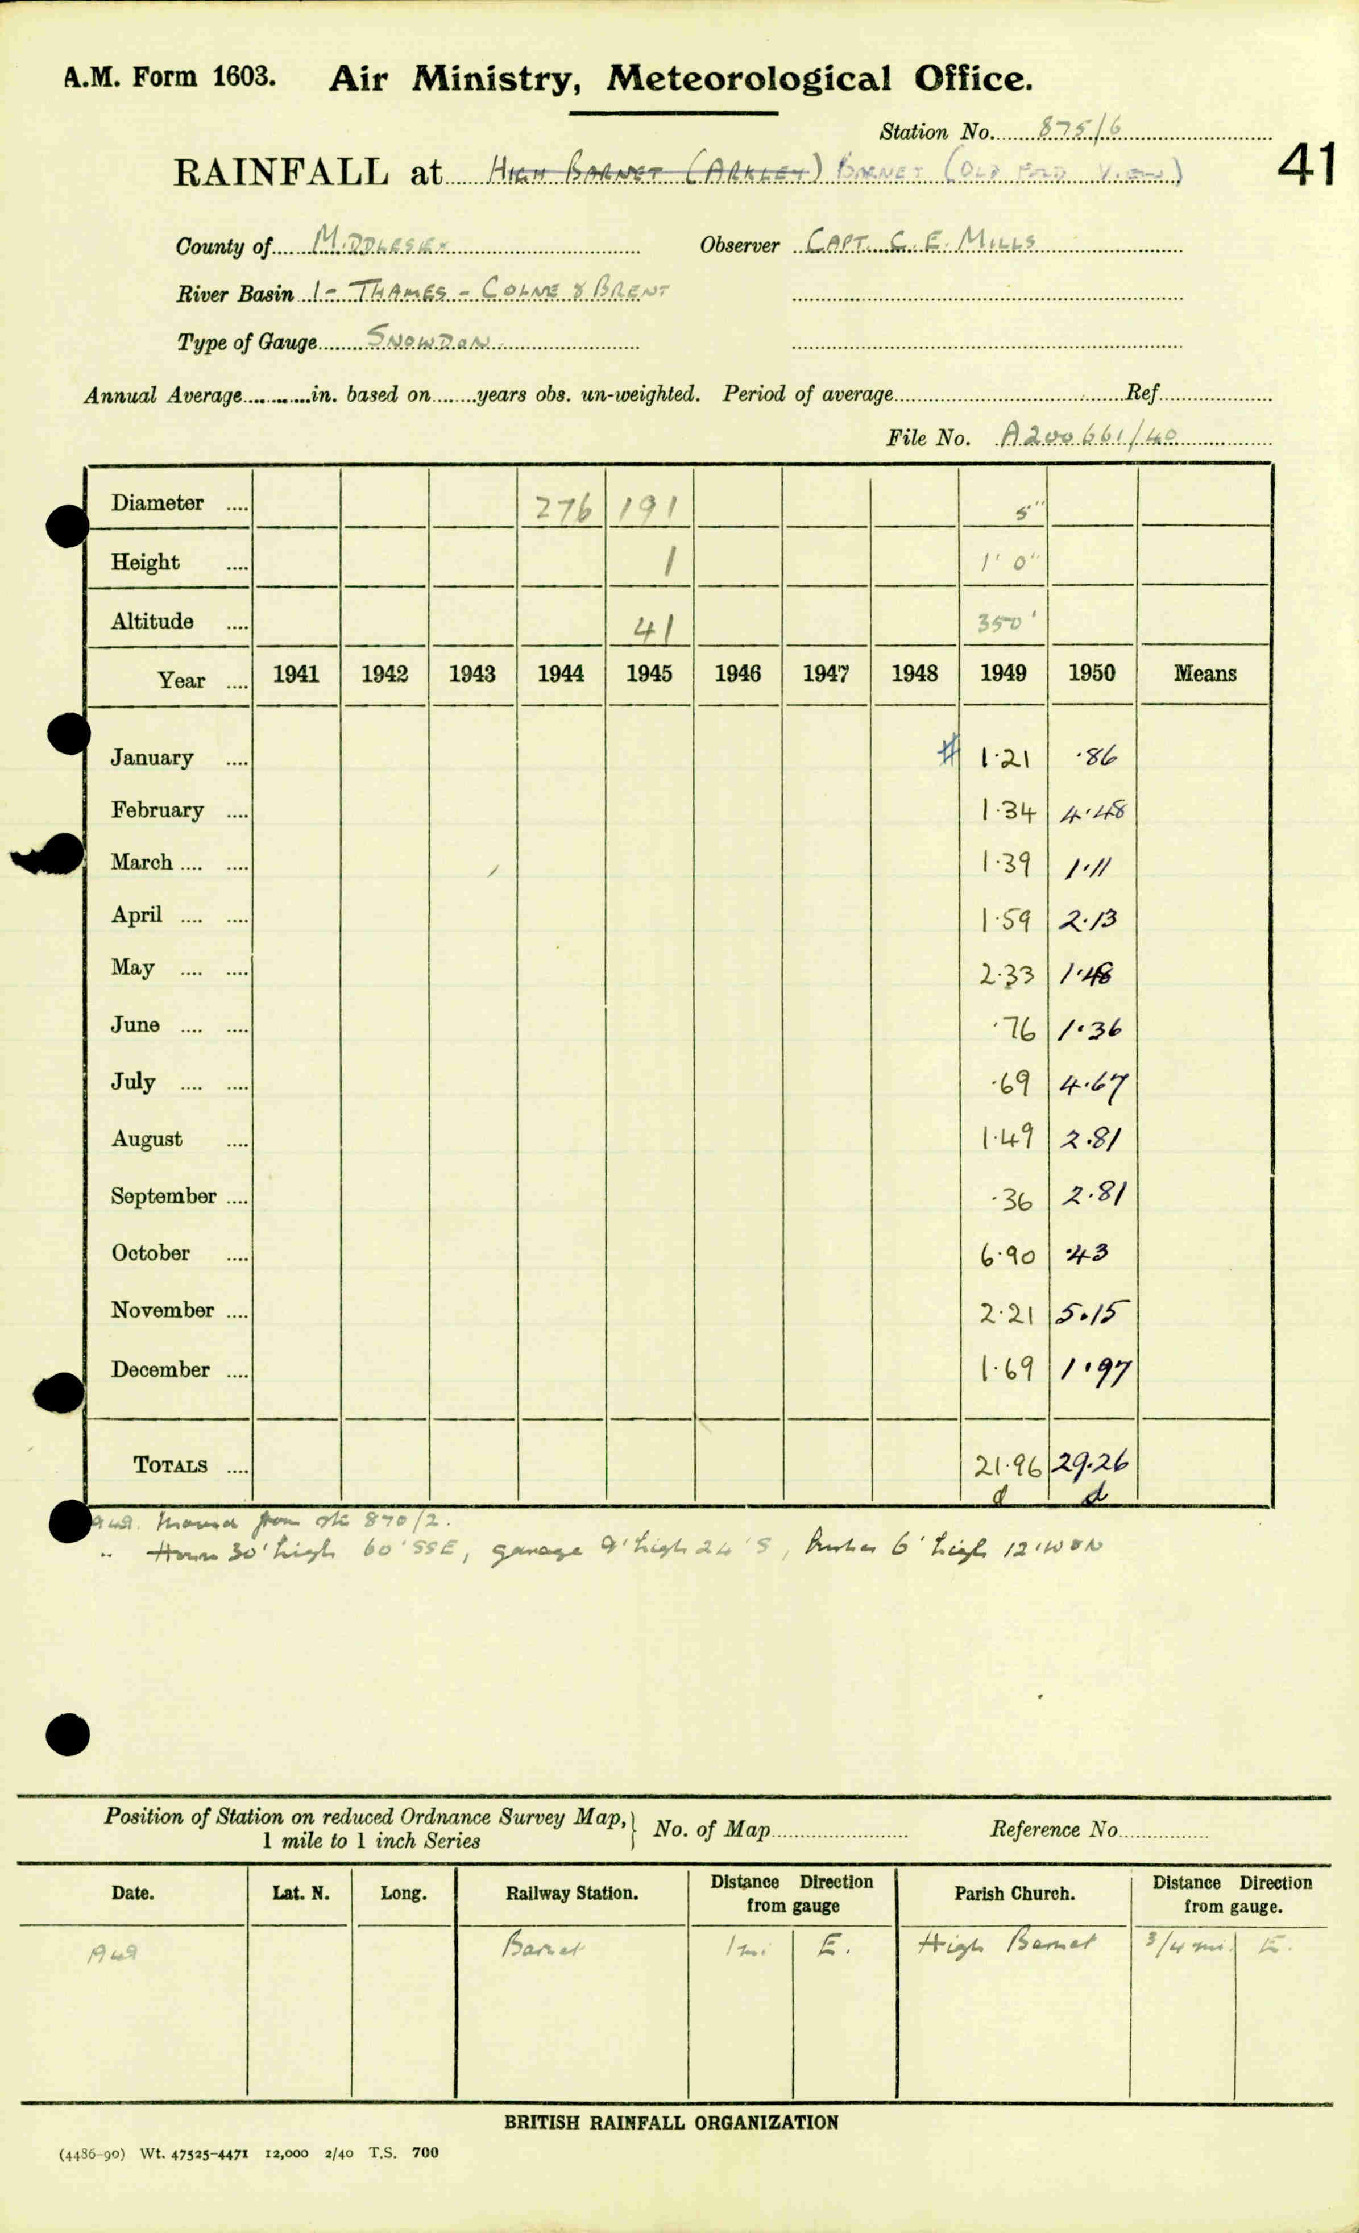 A.M. Form 1603. Air Ministry, Meteorological Office.
Station No. 875/6
41
RAINFALL at HIGH BARNET (ARKLEY) BARNET (OLD FOLD VIEW)
County of MIDDLESEX Observer CAPT. C. E. MILLS
River Basin 1 - THAMES - COLNE & BRENT
Type of Gauge SNOWDON
Annual Average in. based on years obs. un-weighted. Period of average Ref
File No. A200661/40
Diameter 276 191 5"
Height 1 1' 0"
Altitude 41 350'
Year 1941 1942 1943 1944 1945 1946 1947 1948 1949 1950 Means
January # 1.21 .86
February 1.34 4.48
March 1.39 1.11
April 1.59 2.13
May 2.33 1.48
June .76 1.36
July .69 4.67
August 1.49 2.81
September .36 2.81
October 6.90 .43
November 2.21 5.15
December 1.69 1.97
TOTALS 21.96 29.26
d d
1949. Moved from stn 870/2.
" House 30' high 60' SSE, garage 9' high 24' S, bushes 6' high 12' W & N
Position of Station on reduced Ordnance Survey Map, 1 mile to 1 inch Series } No. of Map Reference No
Date. Lat. N. Long. Railway Station. Distance Direction from gauge Parish Church. Distance Direction from gauge.
1949 Barnet 1 mi E. High Barnet 3/4 mi. E.
BRITISH RAINFALL ORGANIZATION
(4486-90) Wt. 47525-4471 12,000 2/40 T.S. 700